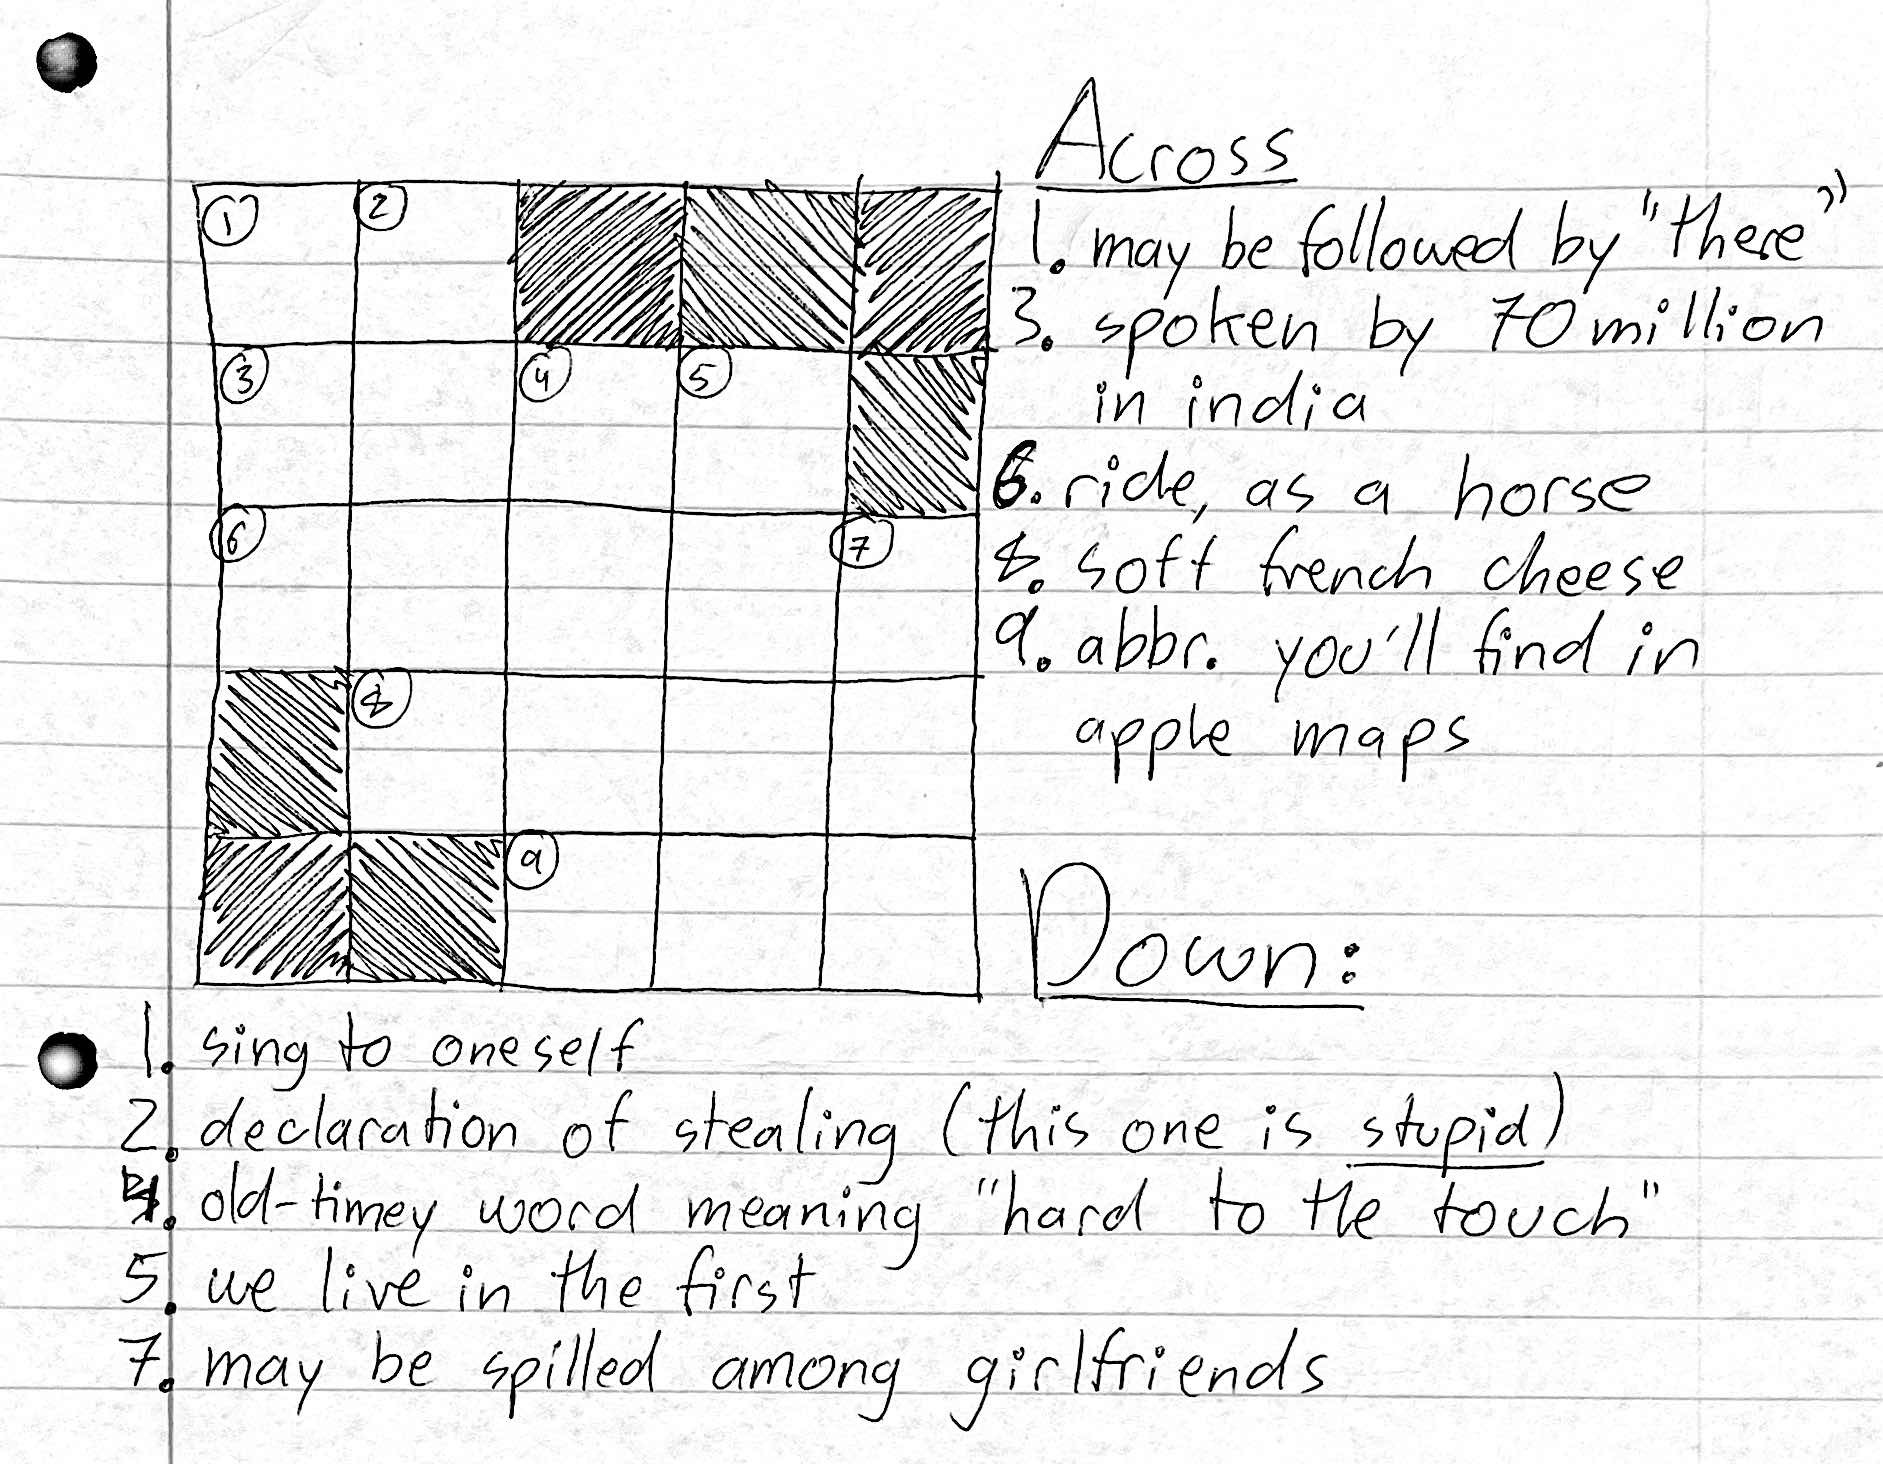 1 2
3 4 5
6 7
8
9
Across
1. may be followed by "there"
3. spoken by 70 million
in india
6. ride, as a horse
8. soft french cheese
9. abbr. you'll find in
apple maps
Down:
1. sing to oneself
2. declaration of stealing (this one is stupid)
4. old-timey word meaning "hard to the touch"
5. we live in the first
7. may be spilled among girlfriends